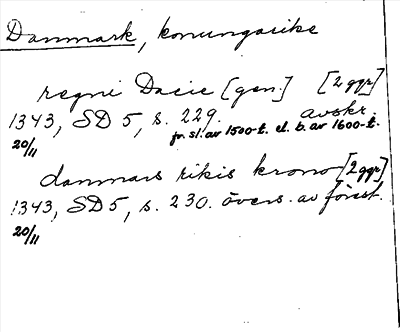 Danmark, konungarike
regni Dacie [gen.] [2 ggr]
1343, SD 5, s. 229. avskr.
20/11 fr. sl. av 1500-t. el. b. av 1600-t.
danmars rikis krono [2 ggr]
1343, SD 5, s. 230. övers. av föreg.
20/11